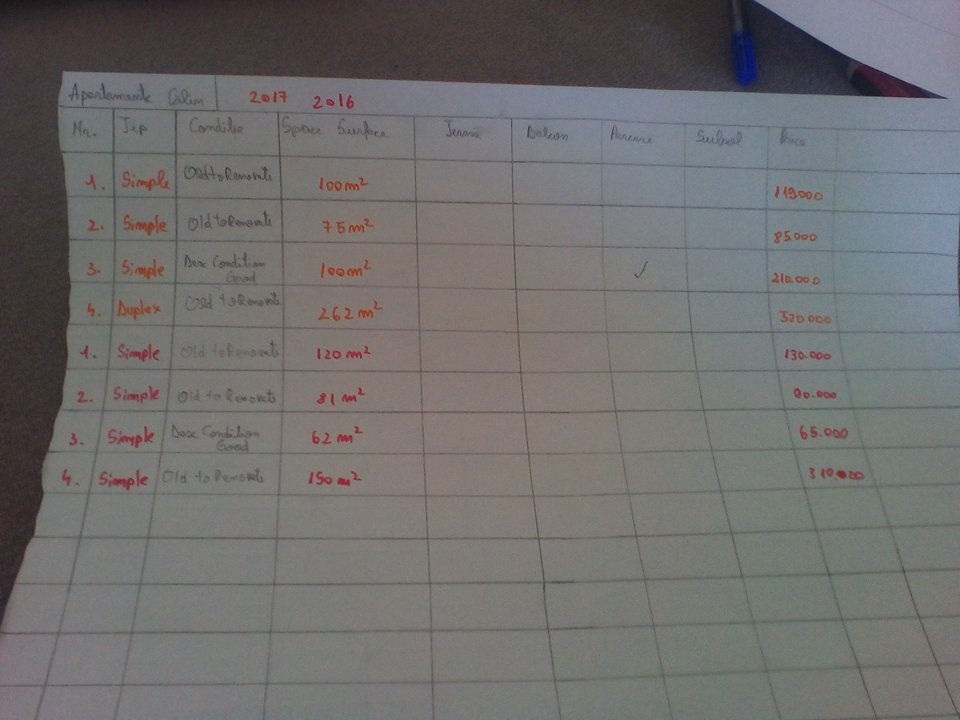 Apartamente Calin 2017 2016
Nr. Tip Conditie Space Surface Balcon Price
1. Simple Old to Renovate 100 m² 119000
2. Simple Old to Renovate 75 m² 85.000
3. Simple Condition Good 100 m² ✓ 210.000
4. Duplex Old to Renovate 262 m² 320.000
1. Simple Old to Renovate 120 m² 130.000
2. Simple Old to Renovate 81 m² 90.000
3. Simple Condition Good 62 m² 65.000
4. Simple Old to Renovate 150 m²